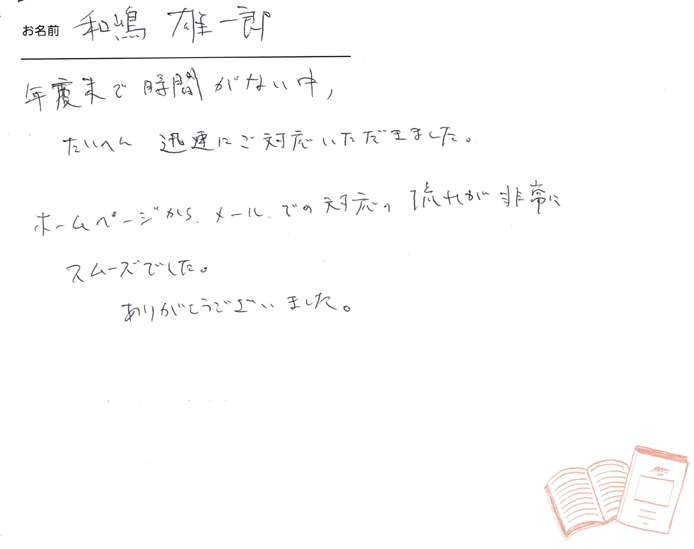 お名前 和嶋 雄一郎
年度末で時間がない中,
たいへん 迅速にご対応いただきました。
ホームページから、メール、での対応の流れが非常に
スムーズでした。
ありがとうございました。